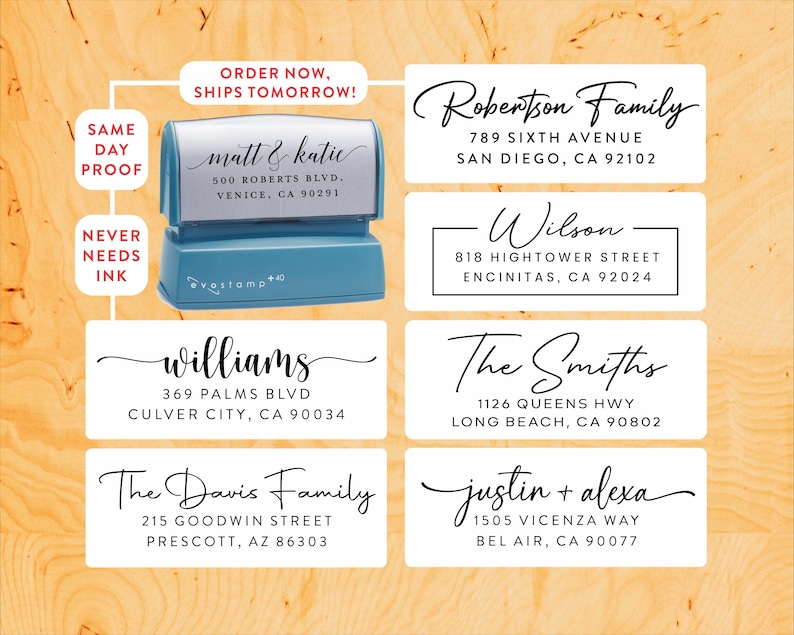 ORDER NOW,
SHIPS TOMORROW!
SAME
DAY
PROOF
NEVER
NEEDS
INK
matt & katie
500 ROBERTS BLVD.
VENICE, CA 90291
evostamp+40
Robertson Family
789 SIXTH AVENUE
SAN DIEGO, CA 92102
Wilson
818 HIGHTOWER STREET
ENCINITAS, CA 92024
williams
369 PALMS BLVD
CULVER CITY, CA 90034
The Smiths
1126 QUEENS HWY
LONG BEACH, CA 90802
The Davis Family
215 GOODWIN STREET
PRESCOTT, AZ 86303
justin + alexa
1505 VICENZA WAY
BEL AIR, CA 90077